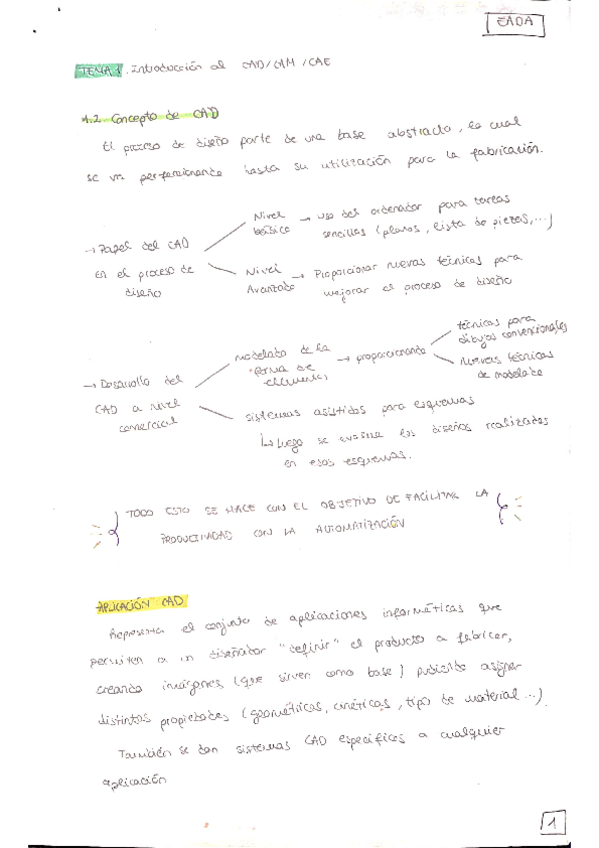 EADA
TEMA 1. Introducción al CAD/CAM/CAE
1.2 Concepto de CAD
El proceso de diseño parte de una base abstracta, la cual
se va perfeccionando hasta su utilización para la fabricación.
→ Papel del CAD
en el proceso de
diseño
Nivel
básico
→ uso del ordenador para tareas
sencillas (planos, lista de piezas,...)
Nivel
Avanzado
→ Proporcionar nuevas técnicas para
mejorar el proceso de diseño
→ Desarrollo del
CAD a nivel
comercial
modelado de la
forma de
elementos
→ proporcionando
técnicas para
dibujos convencionales
nuevas técnicas
de modelado
sistemas asistidos para esquemas
↳ luego se evalúa los diseños realizados
en esos esquemas.
TODO ESTO SE HACE CON EL OBJETIVO DE FACILITAR LA
PRODUCTIVIDAD CON LA AUTOMATIZACIÓN
APLICACIÓN CAD
Representa el conjunto de aplicaciones informáticas que
permiten a un diseñador "definir" el producto a fabricar,
creando imágenes (que sirven como base) pudiendo asignar
distintas propiedades (geométricas, cinéticas, tipo de material...)
También se dan sistemas CAD específicos a cualquier
aplicación
1